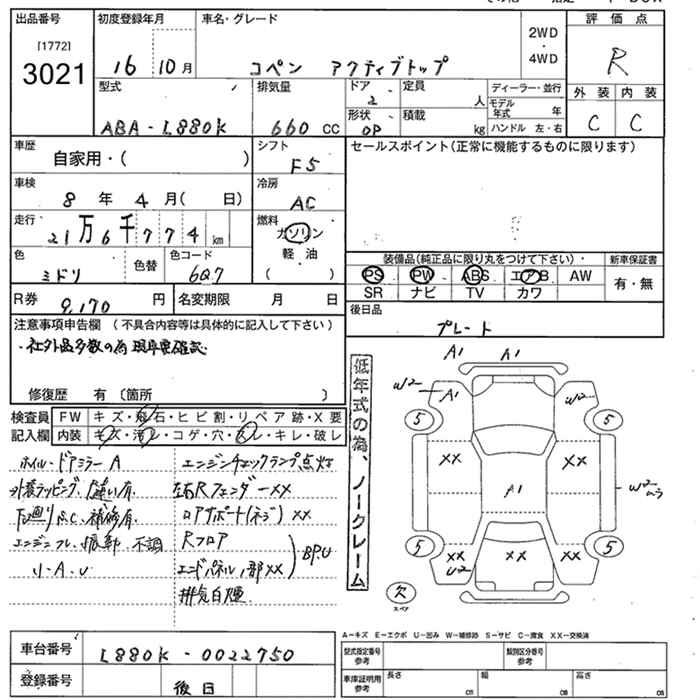 出品番号
[1772]
3021
初度登録年月
16 10月
車名・グレード
コペン アクティブトップ
2WD
・
4WD
評価点
R
型式
ABA-L880K
排気量
660 CC
ドア
2
定員
人
形状
OP
積載
kg
ディーラー・並行
モデル年式 年
ハンドル 左・右
外装 内装
C C
車歴
自家用・( )
シフト
F5
セールスポイント(正常に機能するものに限ります)
車検
8 年 4 月( 日)
冷房
AC
走行
21万6千774km
燃料
ガソリン
軽・油
( )
色
ミドリ
色替
色コード
6Q7
装備品(純正品に限り丸をつけて下さい)
新車保証書
PS PW ABS エアB AW
SR ナビ TV カワ
有・無
R券 9,170 円
名変期限 月 日
後日品
プレート
注意事項申告欄(不具合内容等は具体的に記入して下さい)
・社外品多数の為現車要確認
修復歴 有〔箇所 〕
検査員記入欄
FW キズ・飛石・ヒビ割・リペア跡・X要
内装 キズ・汚レ・コゲ・穴・スレ・キレ・破レ
ホイル・ドアミラーA
外装ラッピング、色違い有
下廻りS.C、補修有
エンジンフレ、振動、不調
小・A・U
エンジンチェックランプ点灯
左右Rフェンダー××
ロアサポート(ネジ)××
Rフロア
エンドパネル、一部××
BP.U
排気白煙
低年式の為、ノークレーム
A1 A1
W2 A1 W2
5 5
×× ××
A1
W2ムラ
5 5
××U2 ×× ××
欠
スペア
A-キズ E-エクボ U-凹み W-補修跡 S-サビ C-腐食 XX-交換済
車台番号
L880K-0022750
登録番号
後日
型式指定番号参考
類別区分番号参考
車庫証明用参考
長さ cm
幅 cm
高さ cm